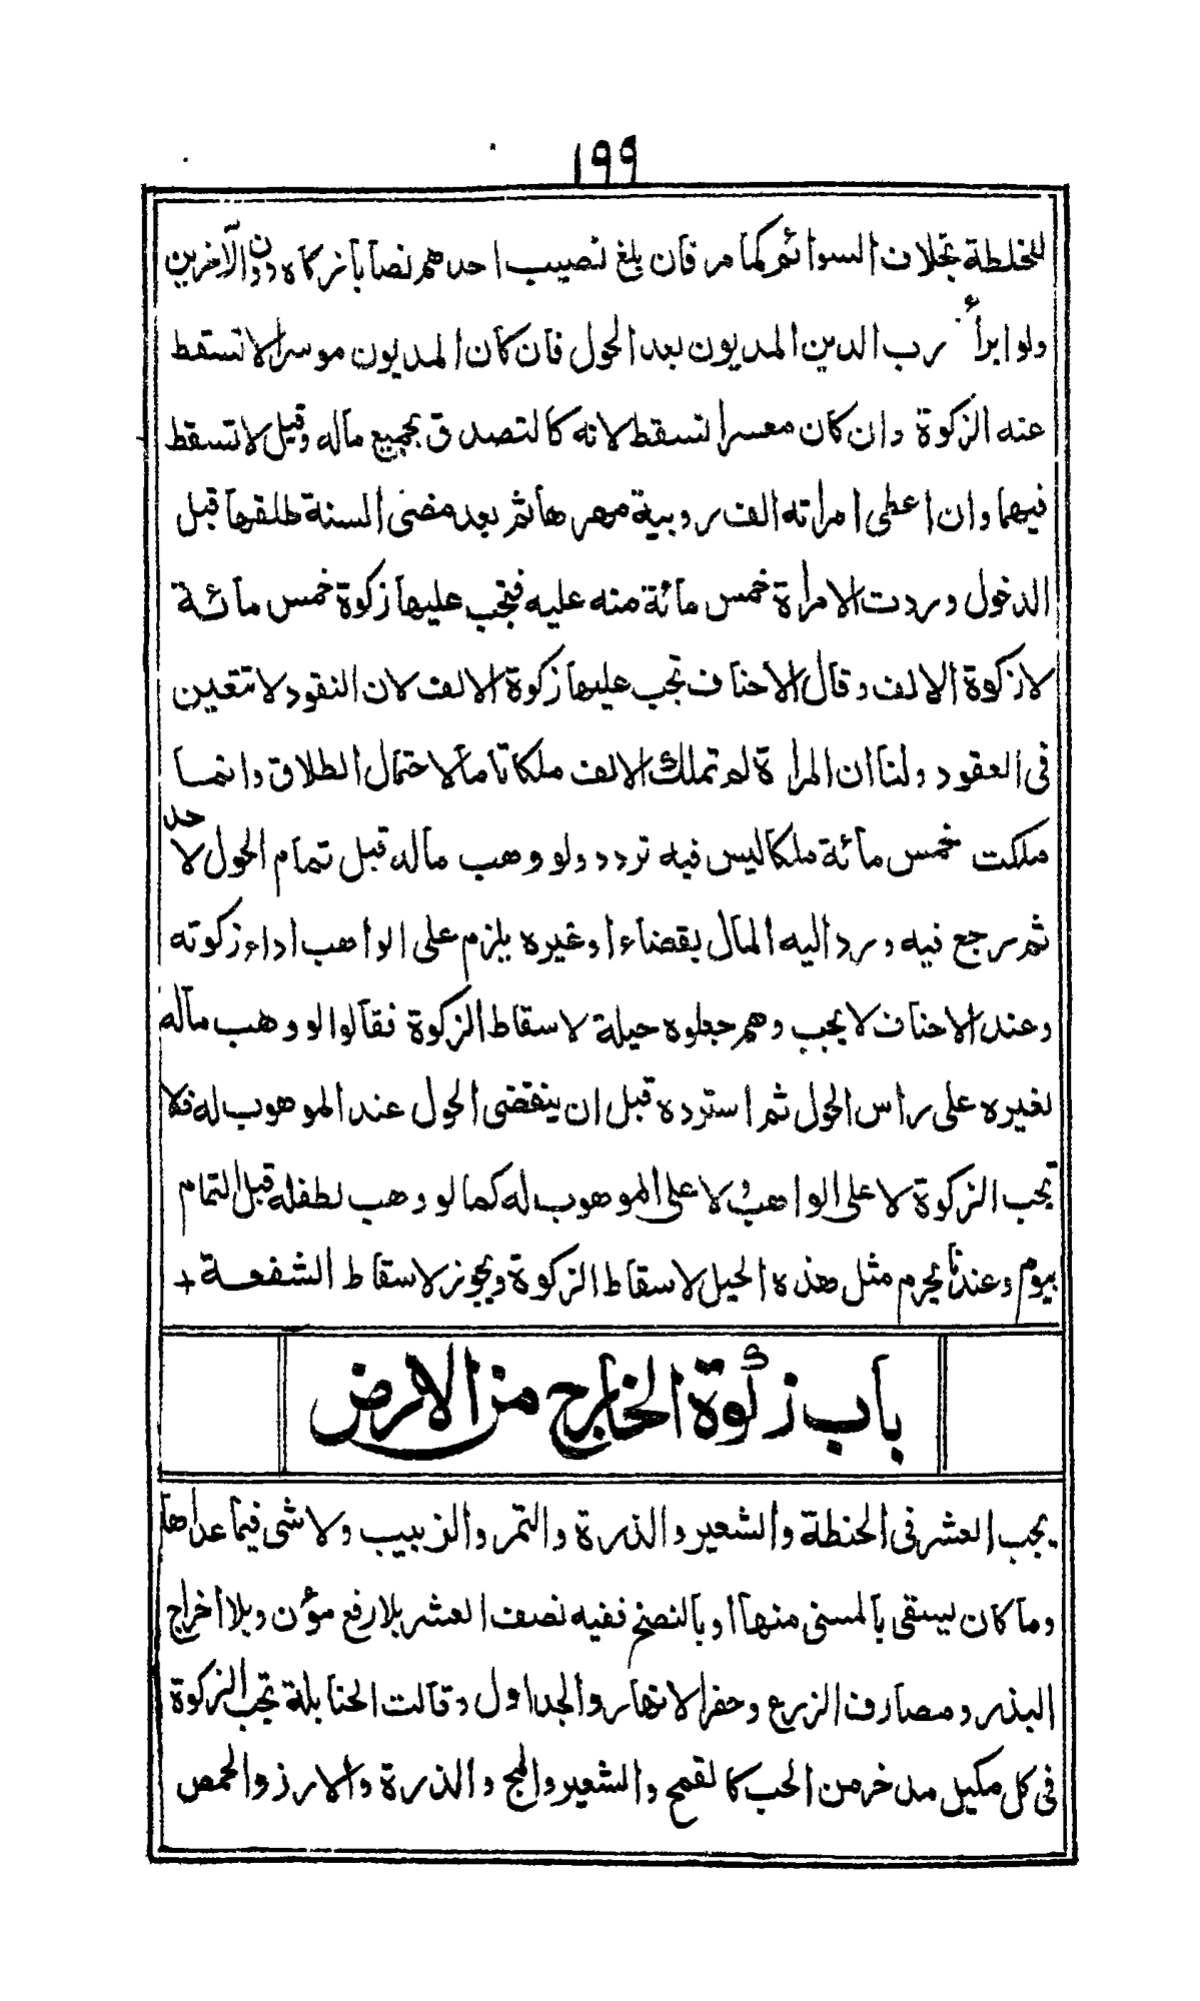 ١٩٩
للخلطة بخلاف السوائم كما مر فان بلغ نصيب احدهم نصابا زكاه دون الآخرين
ولو ابرأ رب الدين المديون بعد الحول فان كان المديون موسرا لا تسقط
عنه الزكوة وان كان معسرا تسقط لانه كالتصدق بجميع ماله وقيل لا تسقط
فيهما وان اعطى امراته الف روبية مهرها ثم بعد مضى السنة طلقها قبل
الدخول وردت الامرأة خمس مائة منه عليه فتجب عليها زكوة خمس مائة
لا زكوة الالف وقال الاحناف تجب عليها زكوة الالف لان النقود لا تتعين
فى العقود ولنا ان المرأة لم تملك الالف ملكا تاما لاحتمال الطلاق وانما
ملكت خمس مائة ملكا ليس فيه تردد ولو وهب ماله قبل تمام الحول لاحد
ثم رجع فيه ورد اليه المال بقضاء او غيره يلزم على الواهب اداء زكوته
وعند الاحناف لا يجب وهم جعلوه حيلة لاسقاط الزكوة فقالوا لو وهب ماله
لغيره على راس الحول ثم استرده قبل ان ينقضى الحول عند الموهوب له فلا
تجب الزكوة لا على الواهب ولا على الموهوب له كما لو وهب لطفله قبل التمام
بيوم وعندنا يحرم مثل هذه الحيل لاسقاط الزكوة ويجوز لاسقاط الشفعة +
باب زكوة الخارج من الارض
يجب العشر فى الحنطة والشعير والذرة والتمر والزبيب ولا شى فيما عداها
وما كان يسقى بالمسنى منها او بالنضح ففيه نصف العشر بلا رفع مؤن وبلا اخراج
البذر ومصارف الزرع وحفر الانهار والجداول وقالت الحنابلة تجب الزكوة
فى كل مكيل مدخر من الحب كالقمح والشعير والمج والذرة والارز والحمص